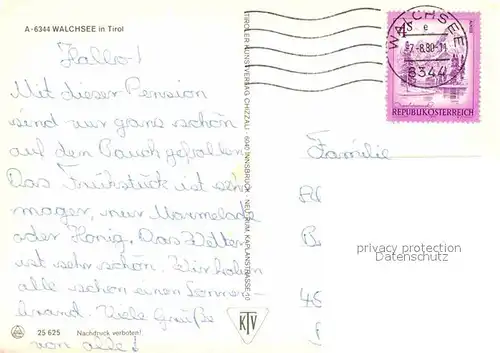 A-6344 WALCHSEE in Tirol
Hallo!
Mit dieser Pension
sind wir ganz schön
auf den Bauch gefallen.
Das Frühstück ist sehr
mager, nur Marmelade
oder Honig. Das Wetter
ist sehr schön. Wir haben
alle schon einen Sonnen-
brand. Viele Grüße
von alle!
25 625 Nachdruck verboten!
TIROLER KUNSTVERLAG CHIZZALI · 6040 INNSBRUCK · NEU-RUM, KAPLANSTRASSE
KTV
WALCHSEE
-8.80-
6344
REPUBLIK ÖSTERREICH
Familie
B
45
privacy protection
Datenschutz